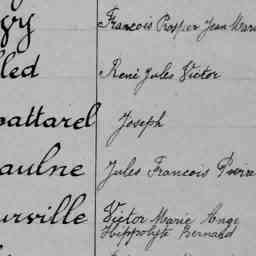 gy François Prosper Jean Marie
led René Jules Victor
battarel Joseph
aulne Jules François Pierre
urville Victor Marie Ange
Hippolyte Bernard